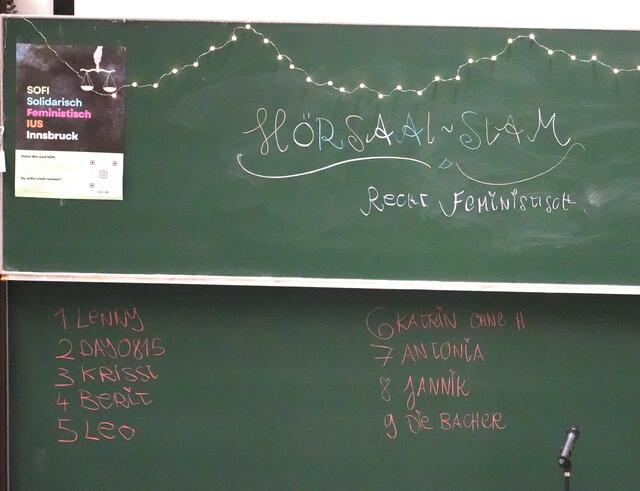 SOFI
Solidarisch
Feministisch
IUS
Innsbruck
Hallo! Wir sind SOFI.
Du willst mehr wissen?
HÖRSAAL~SLAM
RECHT FEMINISTISCH
1 LENNY
2 DAY0815
3 KRISSI
4 BERIT
5 LEO
6 KATRIN OHNE H
7 ANTONIA
8 JANNIK
9 DIE BACHER